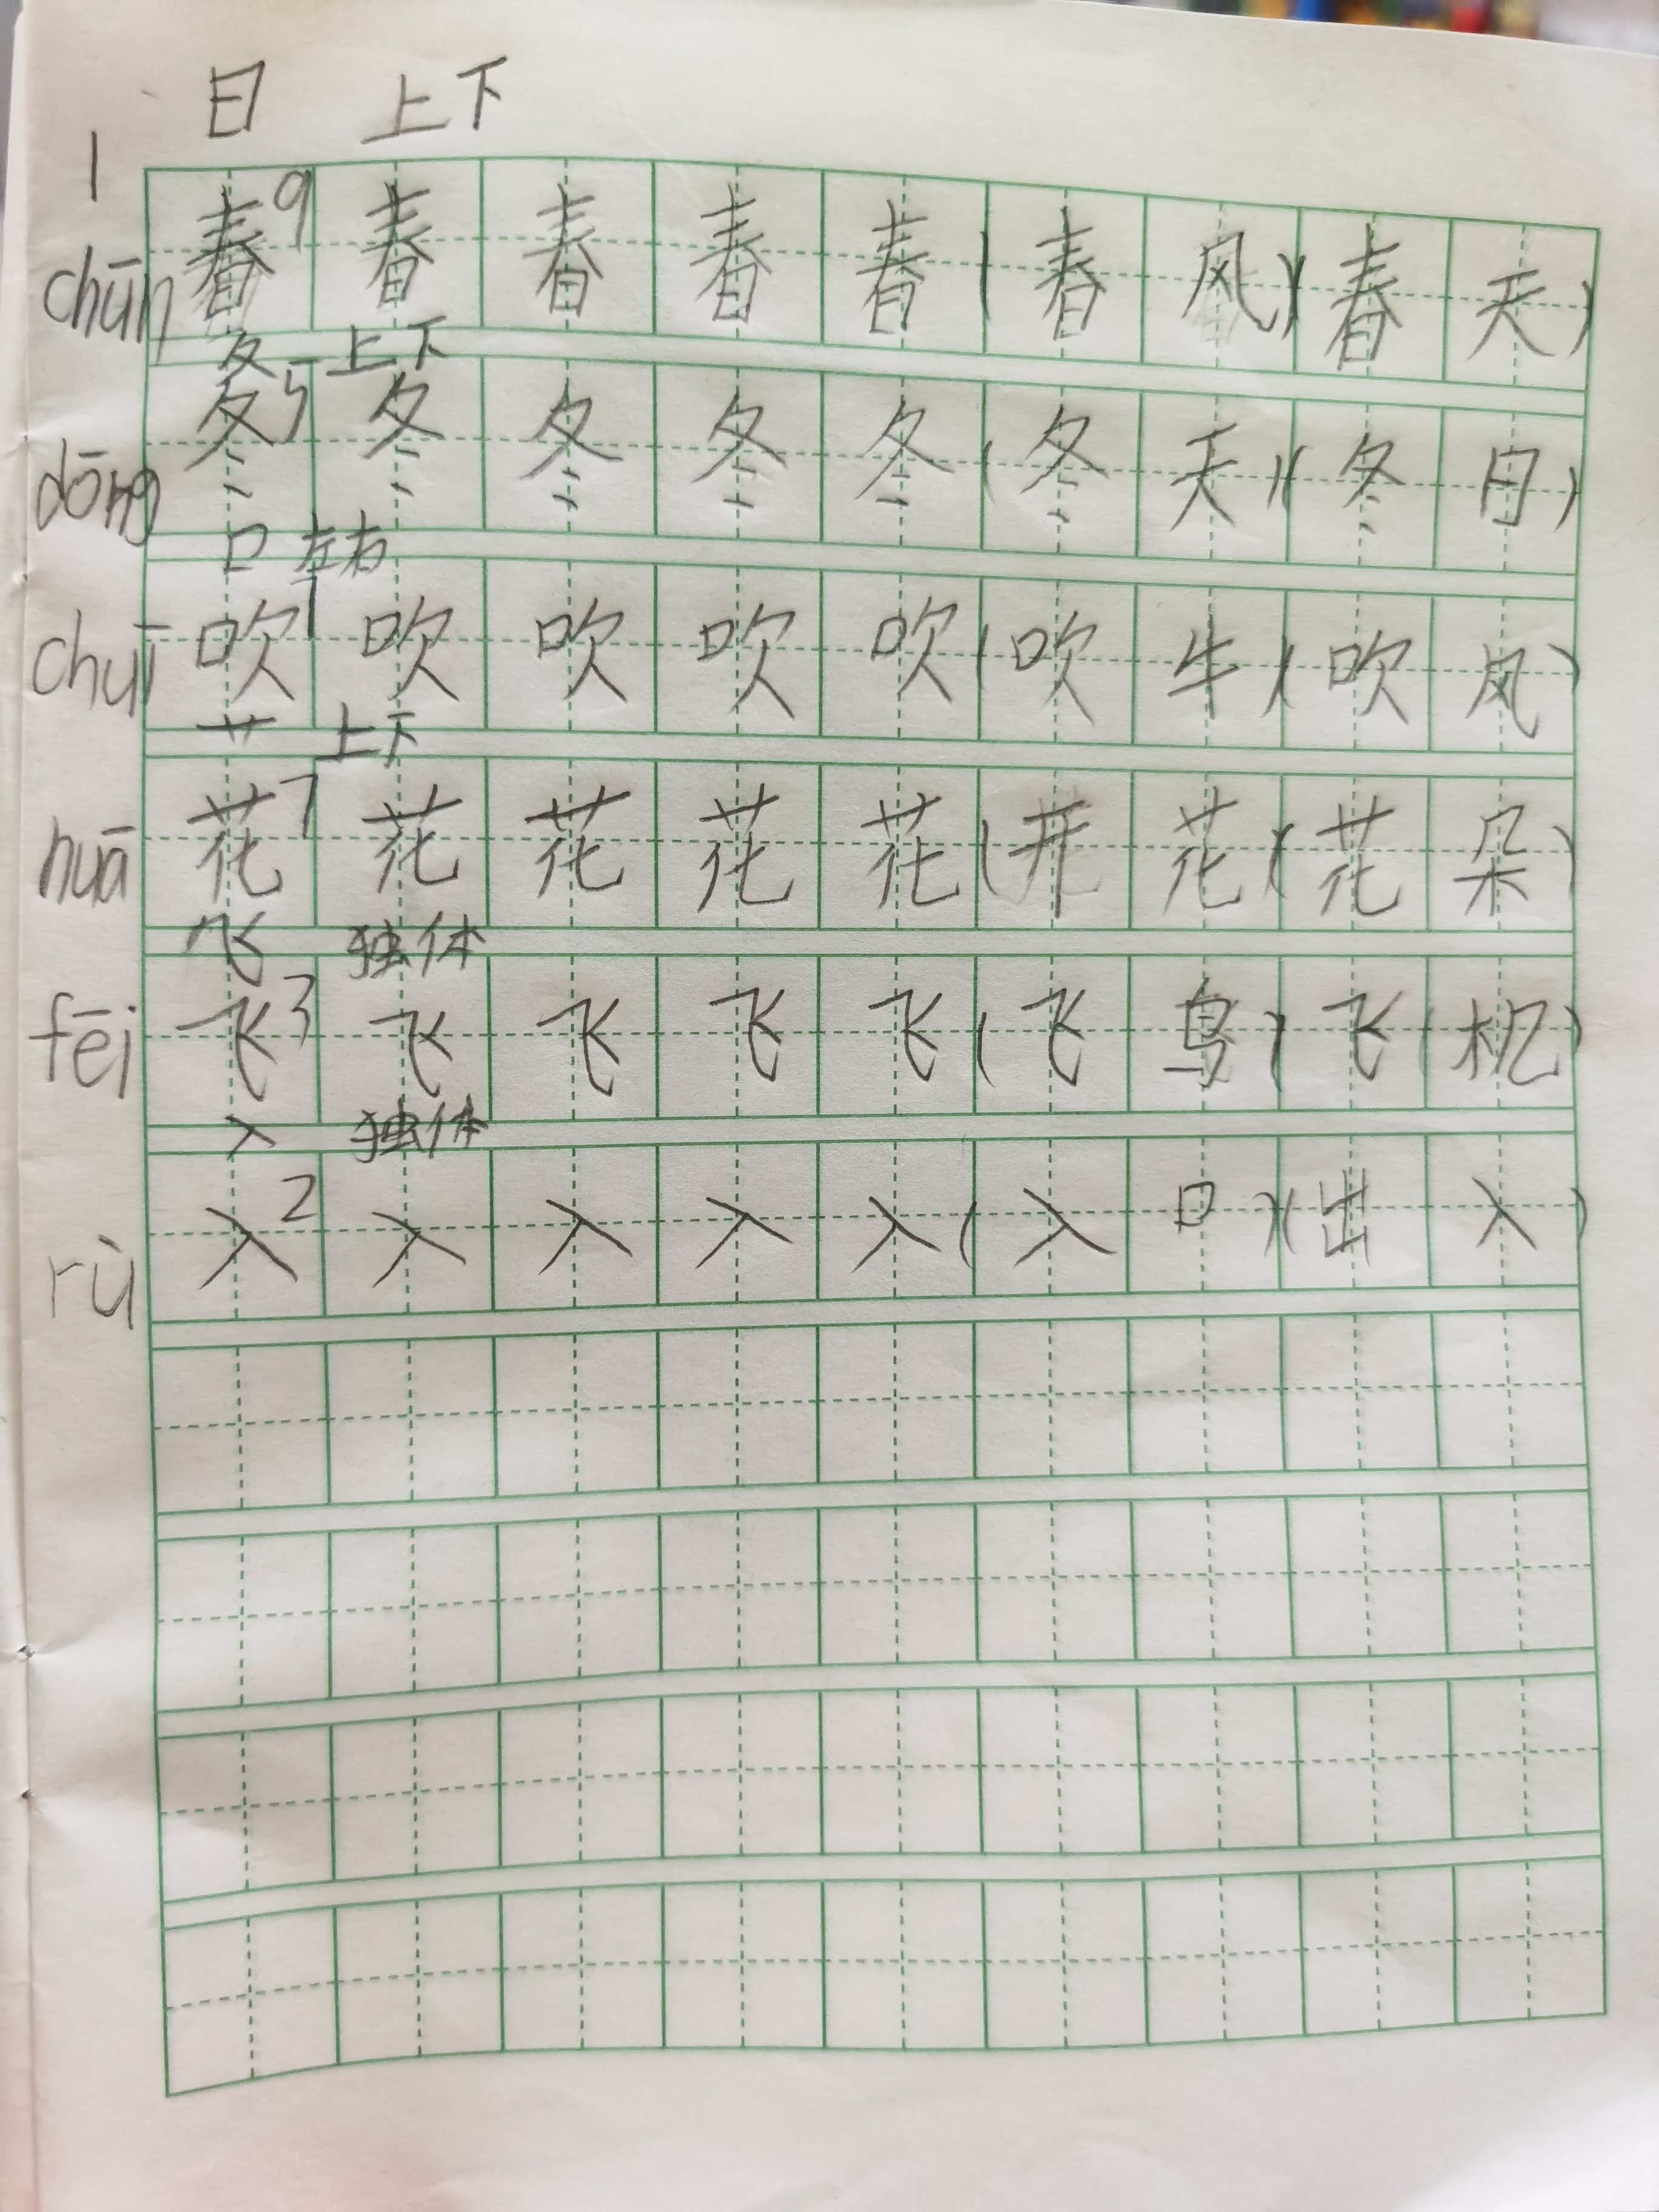 1 日 上下
chūn 春9 春 春 春 春 (春 风)(春 天)
夂 上下
dōng 冬5 冬 冬 冬 冬 (冬 天)(冬 日)
口 左右
chuī 吹7 吹 吹 吹 吹 (吹 牛)(吹 风)
艹 上下
huā 花7 花 花 花 花 (开 花)(花 朵)
飞 独体
fēi 飞3 飞 飞 飞 飞 (飞 鸟)飞(机)
入 独体
rù 入2 入 入 入 入 (入 口)(出 入)